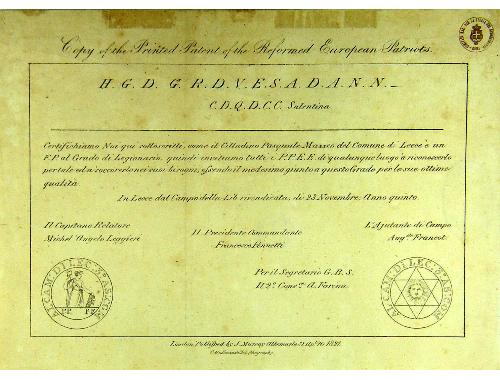 Copy of the Printed Patent of the Reformed European Patriots.
H. G. D. G. R. D. V. E. S. A. D. A. N. N. _
C. D. Q. D. C. C. Salentina
Certifichiamo Noi qui sottoscritti, come il Cittadino Pasquale Masseo del Comune di Lecce è un
F.P. al Grado di Legionario, quindi invitiamo tutti i P.P.E.E. di qualunque luogo a riconoscerlo
per tale ed a soccorerlo nei suoi bisogni, essendo il medesimo giunto a questo Grado per le sue ottime
qualità.
In Lecce dal Campo della Lib rivendicata, di 23 Novembre Anno quinto
Il Capitano Relatore
Michel Angelo Leggieri
Il Presidente Commandante
L'Ajutante di Campo
Per il Segretario G.R.S.
Il 2º A. Farina
London, Published by J. Murray Albemarle St. 1821.